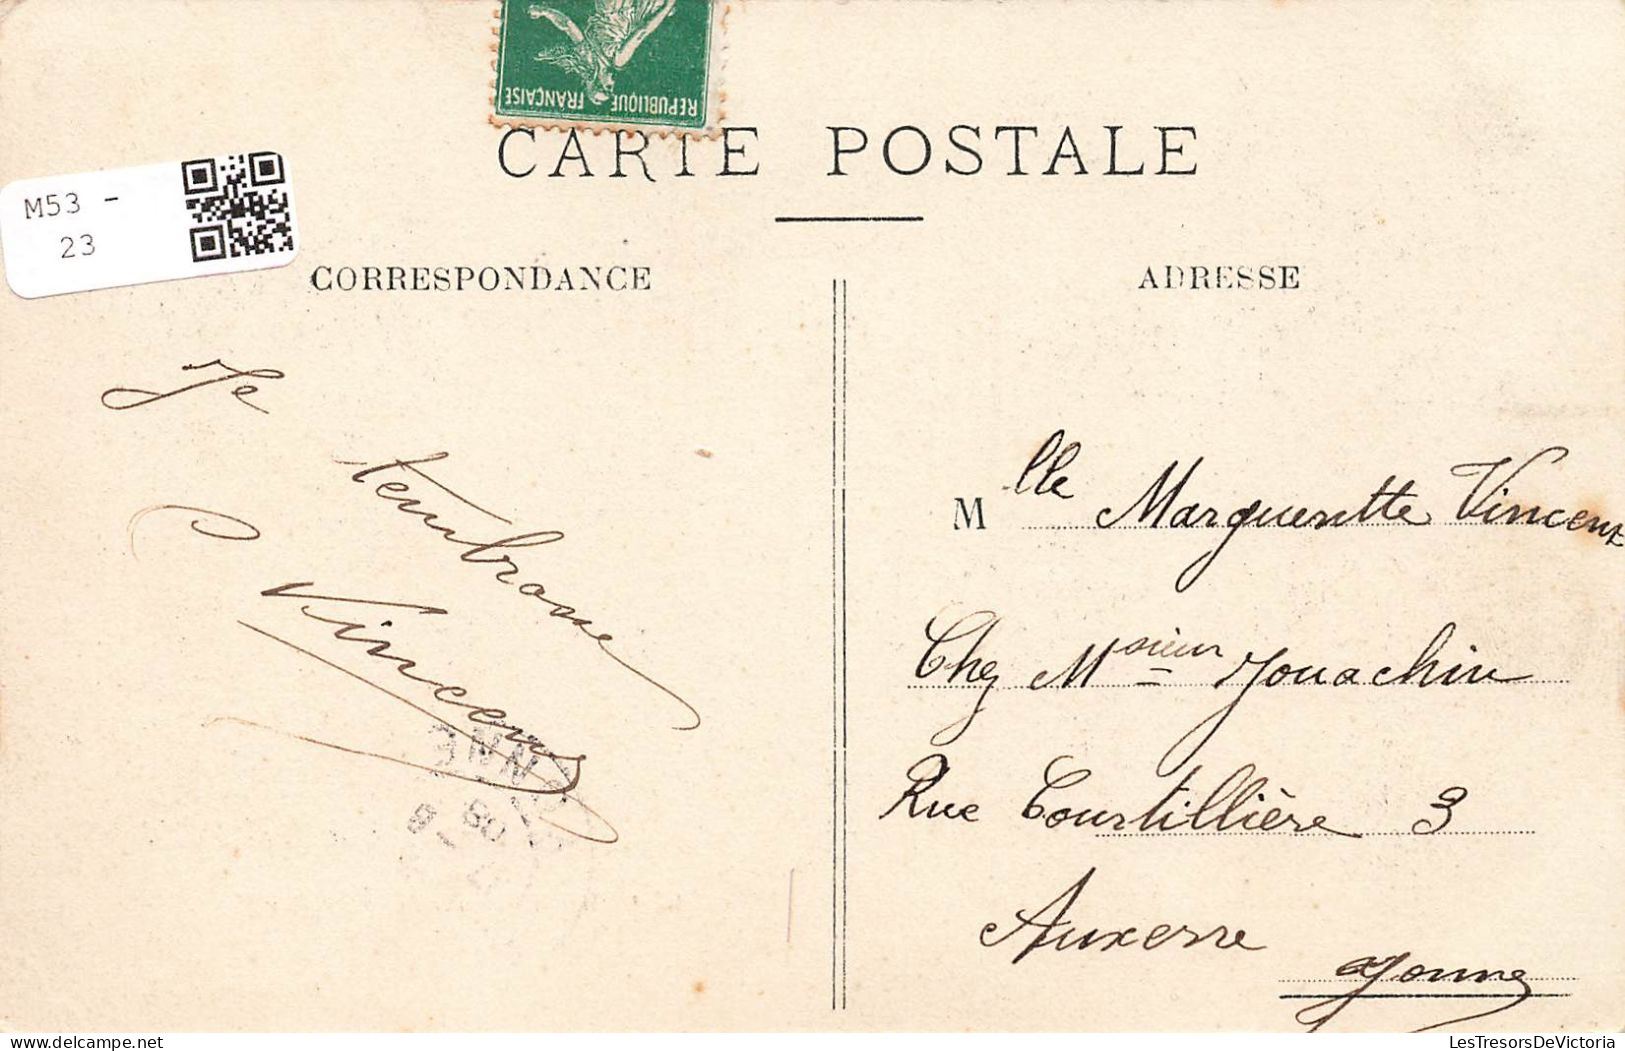 REPUBLIQUE FRANÇAISE
CARTE POSTALE
M53 -
23
CORRESPONDANCE
ADRESSE
Je
t'embrasse
Vincent
Mlle Marguerite Vincent
Chez Monsieur Jouachin
Rue Courtillière 3
Auxerre
Yonne
LesTresorsDeVictoria